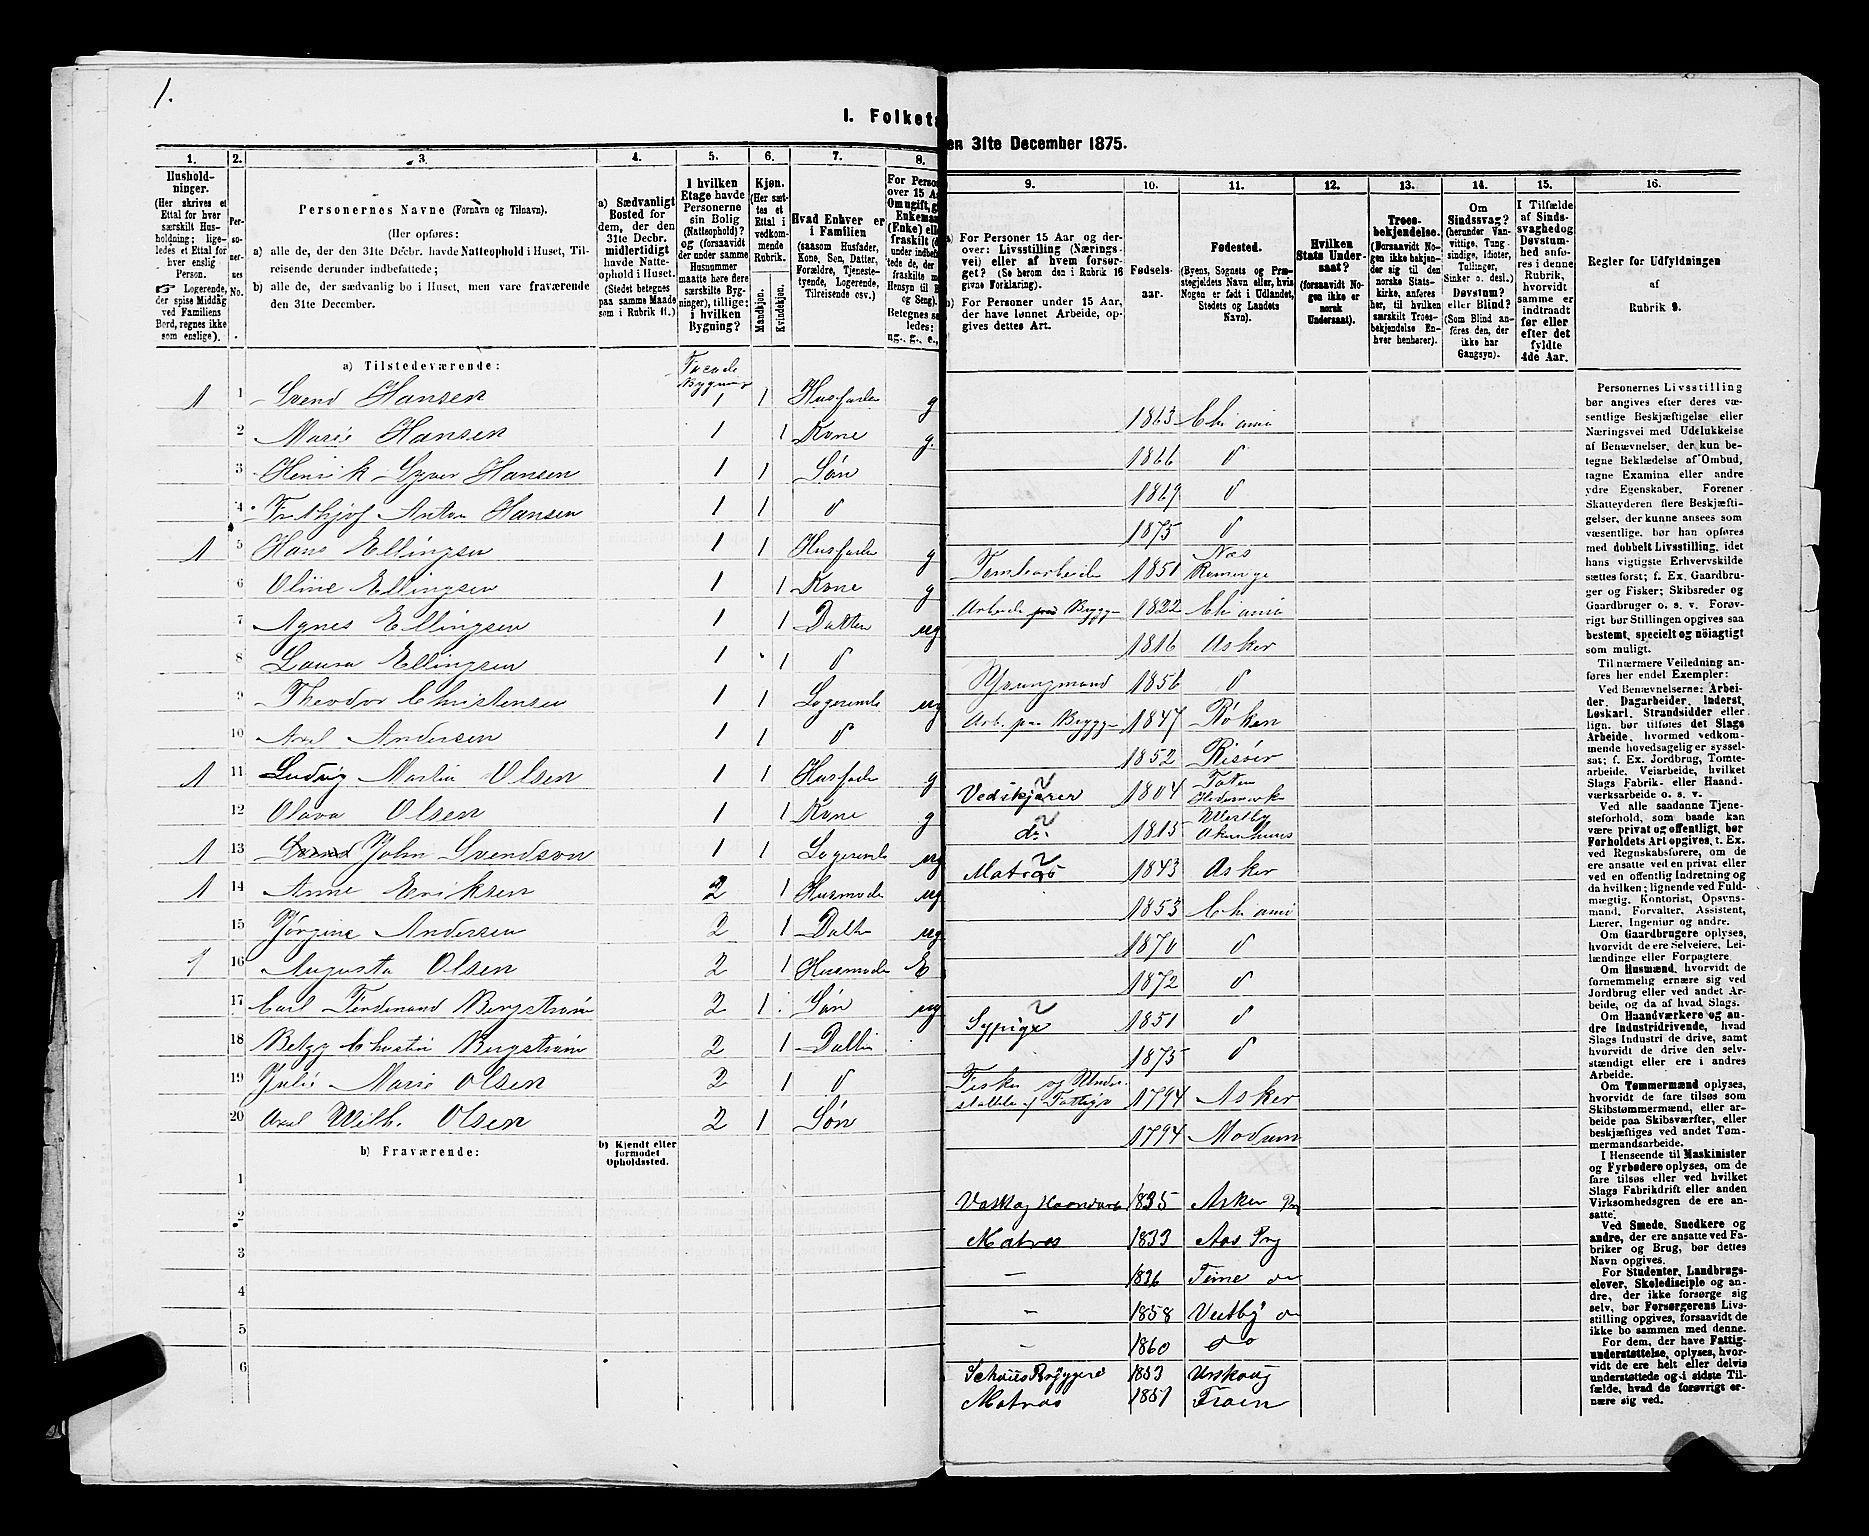 1.
I. Folketæ
en 31te December 1875.
1. 2. 3. 4. 5. 6. 7. 8.
Hushold-
ninger.
(Her skrives et
Ettal for hver
særskilt Hus-
holdning; lige-
ledes et Ettal for
hver enslig
Person.
☞ Logerende,
der spise Middag
ved Familiens
Bord, regnes ikke
som enslige).
Per-
so-
ner-
nes
No.
Personernes Navne (Fornavn og Tilnavn).
(Her opføres:
a) alle de, der den 31te Decbr. havde Natteophold i Huset, Til-
reisende derunder indbefattede;
b) alle de, der sædvanlig bo i Huset, men vare fraværende
den 31te December.
a) Sædvanligt
Bosted for
dem, der den
31te Decbr.
midlertidigt
havde Natte-
ophold i Huset.
(Stedet betegnes
paa samme Maade
som i Rubrik 11.)
I hvilken
Etage havde
Personerne
sin Bolig
(Natteophold)?
og (forsaavidt
der under samme
Husnummer
maatte høre flere
særskilte Byg-
ninger), tillige:
i hvilken
Bygning?
Kjøn.
(Her sæt-
tes et
Ettal i
vedkom-
mende
Rubrik.
Mandkjøn.
Kvindekjøn.
Hvad Enhver er
i Familien
(saasom Husfader,
Kone, Søn, Datter,
Forældre, Tjeneste-
tyende, Logerende,
Tilreisende osv.)
For Person
over 15 Aa
Om ugift, g
Enkeman
(Enke) elle
fraskilt (d
under indbef
tede de, der
fraskilte m
Hensyn til B
og Seng).
Betegnes sa
ledes:
ug., g., e.,
a) Tilstedeværende:
Forende
Bygning
1 1 Svend Hansen 1 1 Husfader g
2 Marie Hansen 1 1 Kone g.
3 Henrik Syver Hansen 1 1 Søn
4 Fridthjof Anton Hansen 1 1 d
1 5 Hans Ellingsen 1 1 Husfader g
6 Oline Ellingsen 1 1 Kone g
7 Agnes Ellingsen 1 1 Datter ug
8 Laura Ellingsen 1 1 d
9 Theodor Christensen 1 1 Logerende ug
10 Axel Andersen 1 1 d
1 11 Ludvig Martin Olsen 1 1 Husfader g
12 Olava Olsen 1 1 Kone g
1 13 John Svendsen 1 1 Logerende ug
1 14 Anne Eriksen 2 1 Husmoder ug
15 Jørgine Andersen 2 1 Datter ug
1 16 Augusta Olsen 2 1 Husmoder E
17 Carl Ferdinand Bergstrøm 2 1 Søn ug
18 Betzy Christin Bergstrøm 2 1 Datter
19 Julie Marie Olsen 2 1 d
20 Axel Wilh. Olsen 2 1 Søn
b) Fraværende:
b) Kjendt eller
formodet
Opholdssted.
1
2
3
4
5
6
9. 10. 11. 12. 13. 14. 15. 16.
a) For Personer 15 Aar og der-
over: Livsstilling (Nærings-
vei) eller af hvem forsør-
get? (Se herom den i Rubrik 16
givne Forklaring).
b) For Personer under 15 Aar,
der have lønnet Arbeide, op-
gives dettes Art.
Fødsels-
aar.
Fødested.
(Byens, Sognets og Præ-
stegjeldets Navn eller, hvis
Nogen er født i Udlandet,
Stedets og Landets
Navn).
Hvilken
Stats Under-
saat?
(forsaavidt No-
gen ikke er
norsk
Undersaat).
Troes-
bekjendelse.
(Forsaavidt No-
gen ikke bekjen-
der sig til den
norske Stats-
kirke, anføres
her, til hvilken
særskilt Troes-
bekjendelse En-
hver henhører).
Om
Sindssvag?
(herunder Van-
vittige, Tung-
sindige, Idioter,
Tullinger,
Sinker o. desl.)
Døvstum?
eller Blind?
(Som Blind an-
føres den, der
ikke har
Gangsyn).
I Tilfælde
af Sinds-
svaghed og
Døvstum-
hed anfø-
res i denne
Rubrik,
hvorvidt
samme er
indtraadt
før eller
efter det
fyldte
4de Aar.
Regler for Udfyldningen
af
Rubrik 9.
1863 Chr ania
1866 d
1869 d
1875 d
1851 Næs
Romerige
Arbeide paa Brygge 1822 Chr ania
1816 Asker
1856 d
Arb. paa Brygge 1847 Røken
1852 Risør
Vedskjærer 1804 Toten
Hedemark
do 1815
Akershus
Matros 1843 Asker
1853 Chr ania
1870 d
1872 d
Sypige 1851 d
1875 d
Fisker og Under-
1794 Asker
1794 Modum
1835 Asker
Matros 1833 Aas Prg
— 1836
— 1858 Vestby do
— 1860 do
Schous Bryggeri 1853 Urskoug
Matros 1851
Personernes Livsstilling
bør angives efter deres væ-
sentlige Beskjæftigelse eller
Næringsvei med Udelukkelse
af Benævnelser, der kun be-
tegne Beklædelse af Ombud,
tagne Examina eller andre
ydre Egenskaber. Forener
Skatteyderen flere Beskjæfti-
gelser, der kunne ansees som
væsentlige, bør han opføres
med dobbelt Livsstilling, idet
hans vigtigste Erhvervskilde
sættes først; f. Ex. Gaardbru-
ger og Fisker; Skibsreder og
Gaardbruger o. s. v. Forøv-
rigt bør Stillingen opgives saa
bestemt, specielt og nöiagtigt
som muligt.
Til nærmere Veiledning an-
føres her endel Exempler:
Ved Benævnelserne: Arbei-
der, Dagarbeider, Inderst,
Løskarl, Strandsidder eller
lign. bør tilføies det Slags
Arbeide, hvormed vedkom-
mende hovedsagelig er syssel-
sat; f. Ex. Jordbrug, Tomte-
arbeide, Veiarbeide, hvilket
Slags Fabrik- eller Haand-
værksarbeide o. s. v.
Ved alle saadanne Tjene-
steforhold, som baade kan
være privat og offentligt, bør
Forholdets Art opgives, t. Ex.
ved Regnskabsførere, om de
ere ansatte ved en privat eller
ved en offentlig Indretning og
da hvilken; lignende ved Fuld-
mægtig, Kontorist, Opsyns-
mand, Forvalter, Assistent,
Lærer, Ingeniør og andre.
Om Gaardbrugere oplyses,
hvorvidt de ere Selveiere, Lei-
lændinge eller Forpagtere.
Om Husmænd, hvorvidt de
fornemmelig ernære sig ved
Jordbrug eller ved andet Ar-
beide, og da af hvad Slags.
Om Haandværkere og an-
dre Industridrivende, hvad
Slags Industri de drive, samt
hvorvidt de drive den selv-
stændigt eller ere i andres
Arbeide.
Om Tømmermænd oplyses,
hvorvidt de fare tilsøs som
Skibstømmermænd, eller ar-
beide paa Skibsværfter, eller
beskjæftiges ved andet Tøm-
mermandsarbeide.
I Henseende til Maskinister
og Fyrbødere oplyses, om de
fare tilsøs eller ved hvilket
Slags Fabrikdrift eller anden
Virksomhedsgren de ere an-
satte.
Ved Smede, Snedkere og
andre, der ere ansatte ved Fa-
briker og Brug, bør dettes
Navn opgives.
For Studenter, Landbrugs-
elever, Skoledisciple og an-
dre, der ikke forsørge sig
selv, bør Forsørgerens Livs-
stilling opgives, forsaavidt de
ikke bo sammen med denne.
For dem, der have Fattig-
understøttelse, oplyses, hvor-
vidt de ere helt eller delvis
understøttede og i sidste Til-
fælde, hvad de forøvrigt er-
nære sig ved.